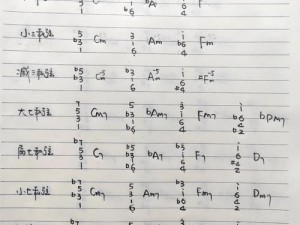 3 1 b6 bA 1 6 4 F
小三和弦 5 b3 1 Cm 3 1 6 Am i b6 4 Fm
减三和弦 b5 b3 1 C-5 b3 1 6 A-5 i b6 #4 #F-5
大七和弦 7 5 3 1 CM7 5 b3 1 b6 bAM7 3 1 6 4 FM7 i b6 4 b2 bDM7
属七和弦 b7 5 3 1 C7 5 b3 1 6 bA7 b3 1 6 4 F7 i 6 #4 2 D7
小七和弦 b7 5 b3 1 Cm7 5 3 1 6 Am7 b3 i b6 4 Fm7 i 6 4 2 Dm7
b7 5 3 i